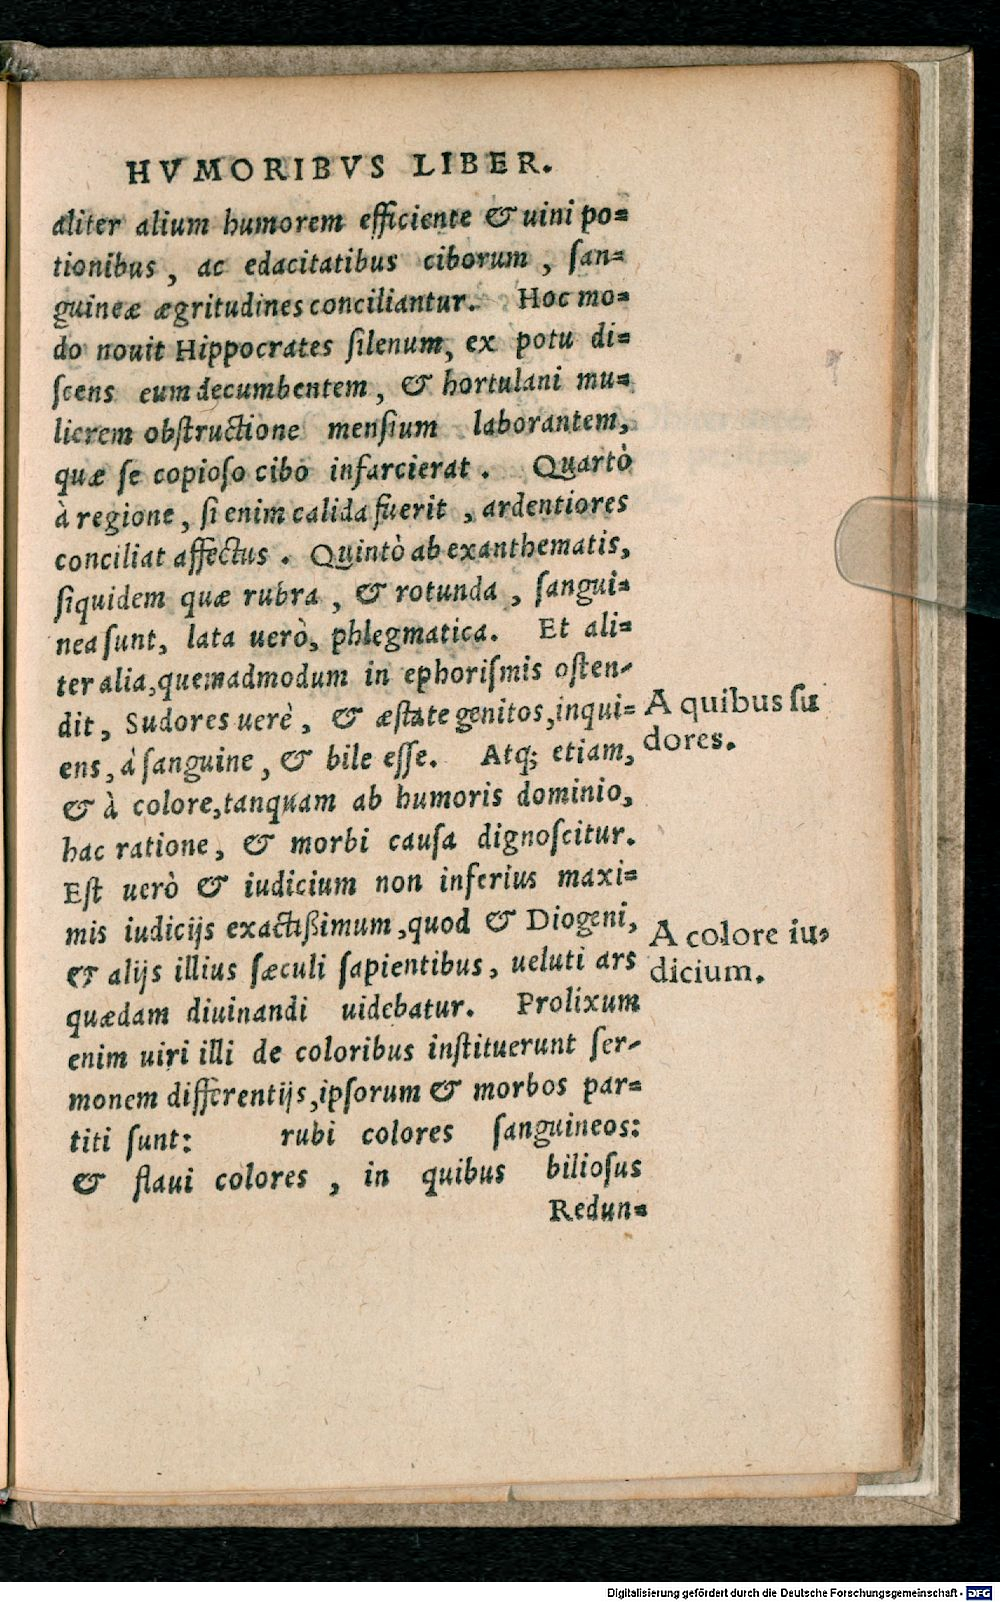 HVMORIBVS LIBER.
aliter alium humorem efficiente & uini po=
tionibus, ac edacitatibus ciborum, ſan=
guineæ ægritudines conciliantur. Hoc mo=
do nouit Hippocrates ſilenum, ex potu di=
ſcens eum decumbentem, & hortulani mu=
lierem obſtructione menſium laborantem,
quæ ſe copioſo cibo infarcierat. Quartò
à regione, ſi enim calida fuerit, ardentiores
conciliat affectus. Quintò ab exanthematis,
ſiquidem quæ rubra, & rotunda, ſangui=
nea ſunt, lata uerò, phlegmatica. Et ali=
ter alia, quemadmodum in ephoriſmis oſten-
dit, Sudores uerè, & æſtate genitos, inqui=
ens, à ſanguine, & bile eſſe. Atq; etiam,
& à colore, tanquam ab humoris dominio,
hac ratione, & morbi cauſa dignoſcitur.
Eſt uerò & iudicium non inferius maxi=
mis iudicijs exactißimum, quod & Diogeni,
& alijs illius ſæculi ſapientibus, ueluti ars
quædam diuinandi uidebatur. Prolixum
enim uiri illi de coloribus inſtituerunt ſer-
monem differentijs, ipſorum & morbos par=
titi ſunt: rubi colores ſanguineos:
& flaui colores, in quibus bilioſus
Redun=
A quibus ſu
dores.
A colore iu=
dicium.
Digitalisierung gefördert durch die Deutsche Forschungsgemeinschaft - DFG